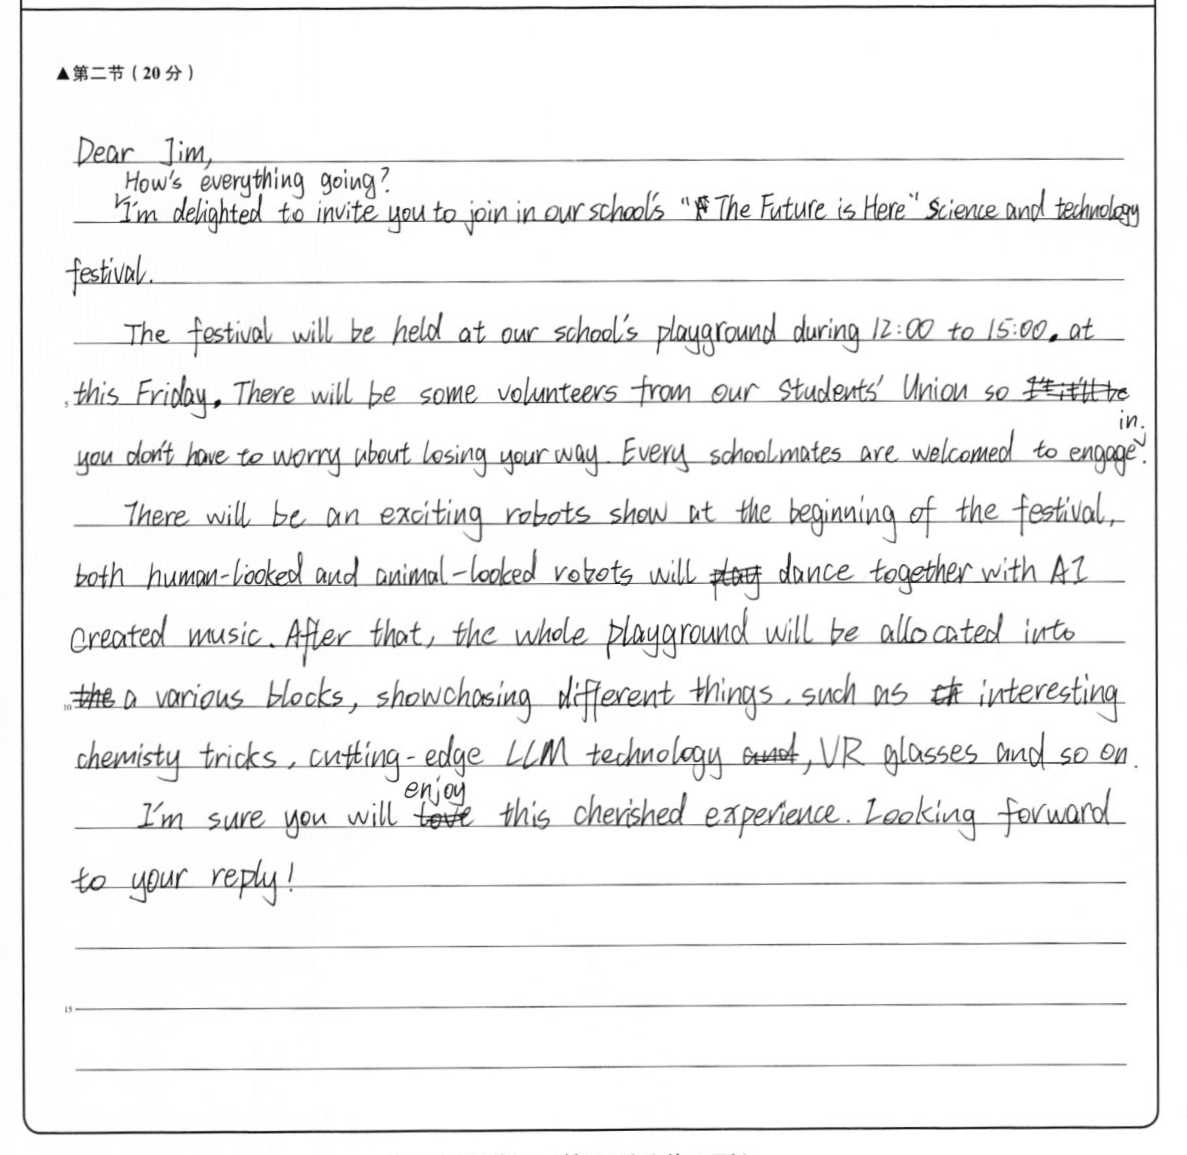 ▲第二节（20分）
Dear Jim,
How's everything going?
I'm delighted to invite you to join in our school's "The Future is Here" Science and technology
festival.
The festival will be held at our school's playground during 12:00 to 15:00. at
5 this Friday. There will be some volunteers from our Students' Union so
in.
you don't have to worry about losing your way. Every schoolmates are welcomed to engage.
There will be an exciting robots show at the beginning of the festival,
both human-looked and animal-looked robots will play dance together with AI
created music. After that, the whole playground will be allocated into
10 the a various blocks, showchasing different things. such as interesting
chemisty tricks, cutting-edge LLM technology and, VR glasses and so on.
enjoy
I'm sure you will love this cherished experience. Looking forward
to your reply!
15